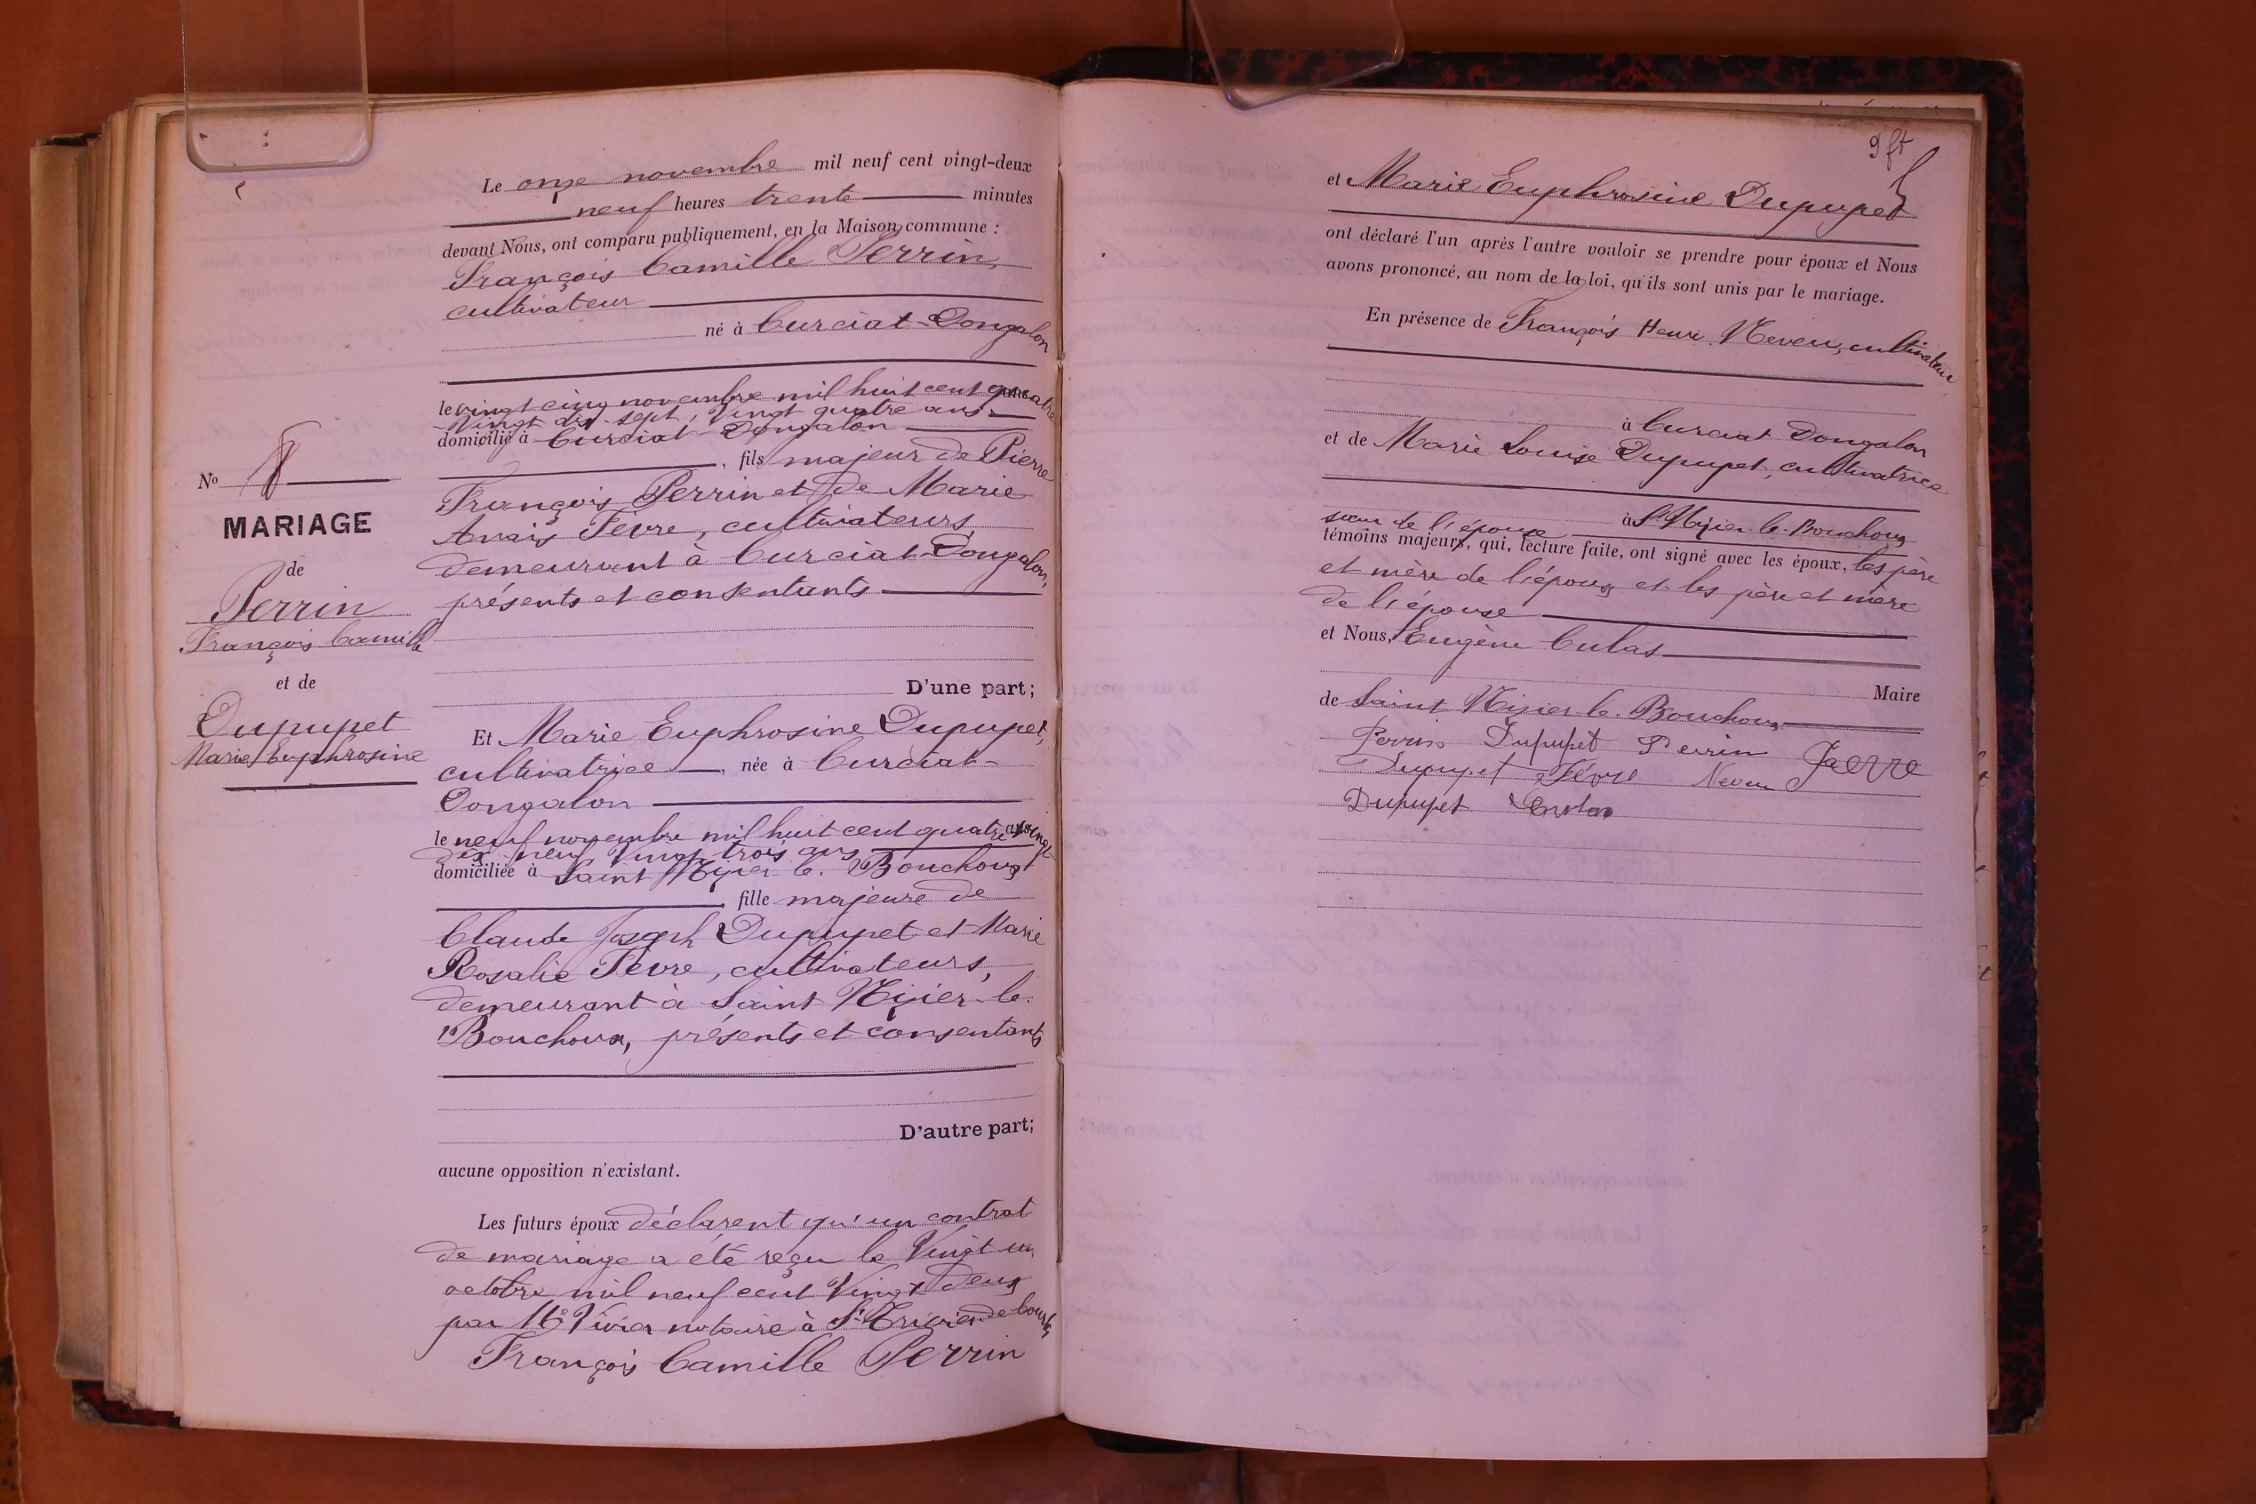 Le onze novembre mil neuf cent vingt-deux
neuf heures trente minutes
devant Nous, ont comparu publiquement, en la Maison commune :
François Camille Perrin,
cultivateur
né à Curciat-Dongalon
le vingt cinq novembre mil huit cent quatre
Vingt dix-sept, Vingt quatre ans
domicilié à Curciat Dongalon
, fils majeur de Pierre
François Perrin et de Marie
Anaïs Fèvre, cultivateurs
demeurant à Curciat-Dongalon,
présents et consentants
D'une part;
Et Marie Euphrosine Dupupet,
cultivatrice, née à Curciat-
Dongalon
le neuf novembre mil huit cent quatre vingt
dix neuf Vingt trois ans
domiciliée à Saint Nizier le Bouchoux
, fille majeure de
Claude Joseph Dupupet et Marie
Rosalie Fèvre, cultivateurs,
demeurant à Saint Nizier-le-
Bouchoux, présents et consentants
D'autre part;
aucune opposition n'existant.
Les futurs époux déclarent qu'un contrat
de mariage a été reçu le Vingt un
octobre mil neuf cent Vingt deux
par Me Vivier notaire à St Trivier de Courtes
François Camille Perrin
No 8
MARIAGE
de
Perrin
François Camille
et de
Dupupet
Marie Euphrosine
9 ft
et Marie Euphrosine Dupupet
ont déclaré l'un après l'autre vouloir se prendre pour époux et Nous
avons prononcé, au nom de la loi, qu'ils sont unis par le mariage.
En présence de François Henri Neveu, cultivateur
à Curciat Dongalon
et de Marie Louise Dupupet, cultivatrice
sœur de l'épouse à St Nizier-le-Bouchoux
témoins majeurs, qui, lecture faite, ont signé avec les époux, les père
et mère de l'époux et les père et mère
de l'épouse
et Nous, Eugène Culas
Maire
de Saint Nizier-le-Bouchoux
Perrin Dupupet Perrin Faevre
Dupupet Fèvre Neveu
Dupupet